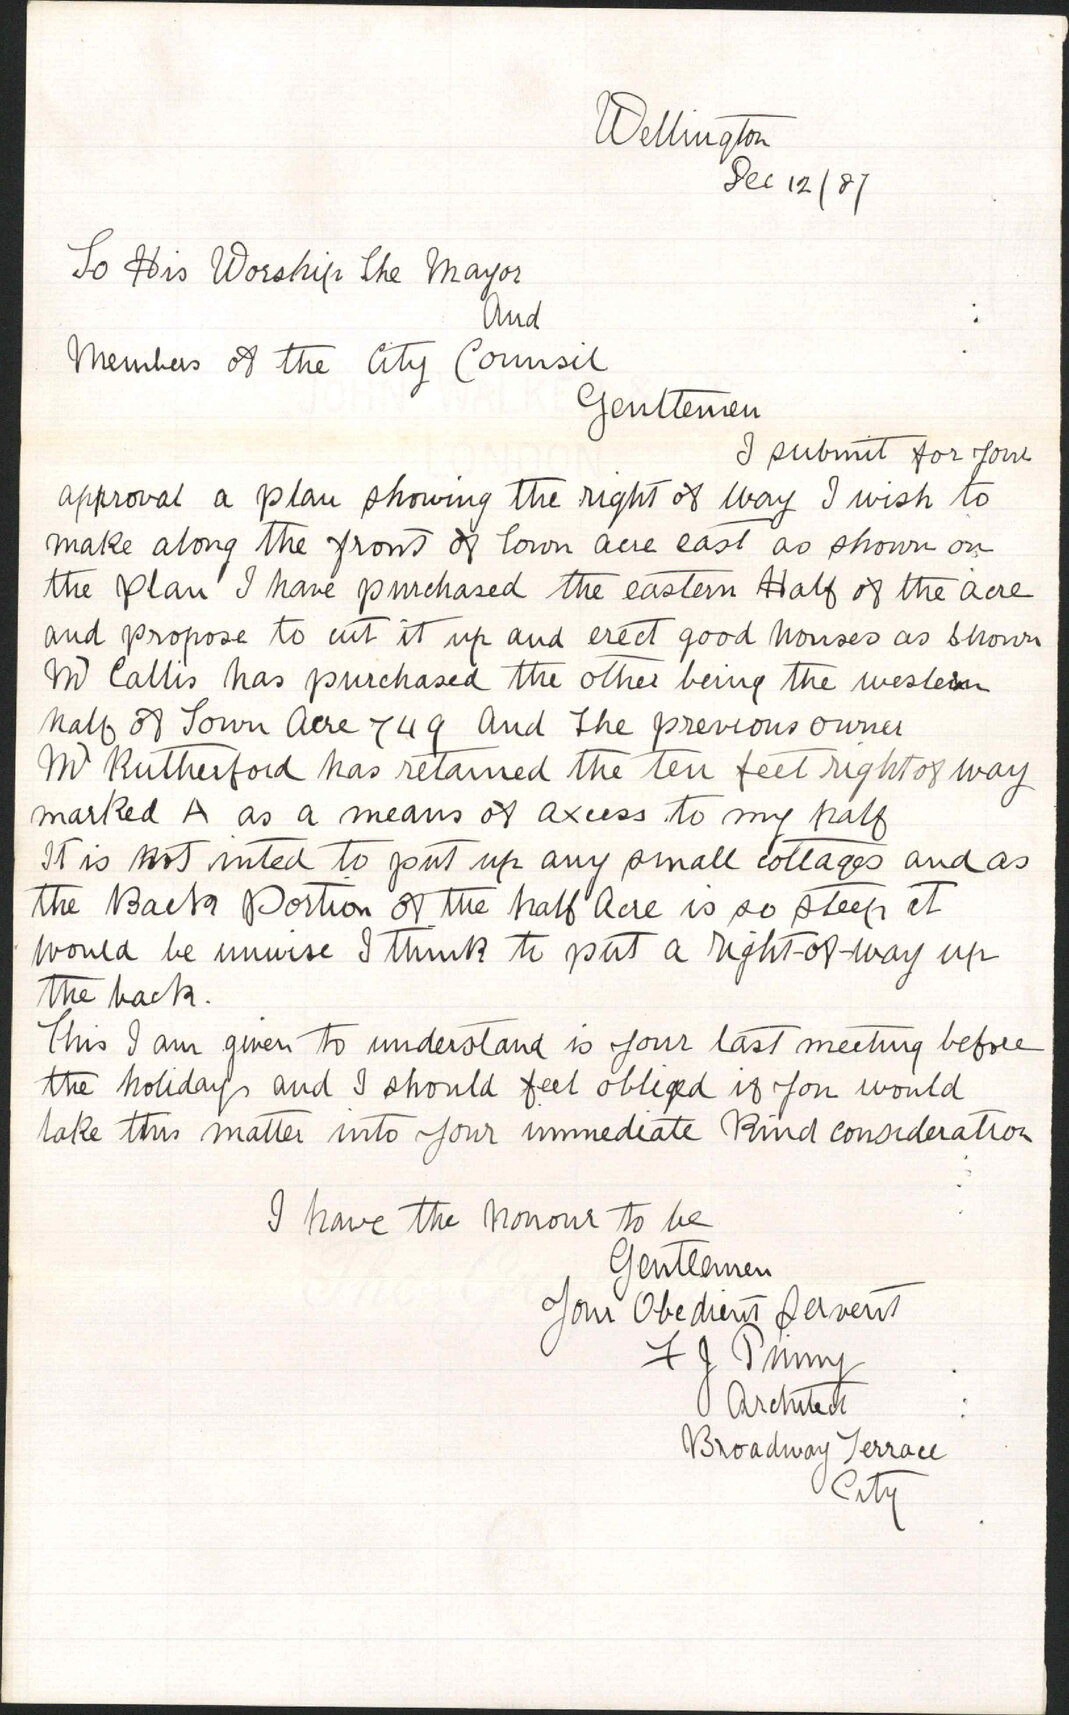 Wellington
Dec 12/87
To His Worship The Mayor
And
Members of the City Counsil
Genttemen
I submit for your
approval a plan showing the right of way I wish to
make along the front of Town acre east as shown on
the plan I have purchased the eastern Half of the acre
and propose to cut it up and erect good houses as shown
Mr Callis has purchased the other being the western
half of Town Acre 749 And The previous owner
Mr Rutherford has retained the ten feet right of way
marked A as a means of axcess to my half
It is not inted to put up any small cottages and as
the Back Portion of the half Acre is so steep it
would be unwise I think to put a right-of-way up
the back.
This I am given to understand is your last meeting before
the holidays and I should feel obliged if you would
take this matter into your immediate Kind consideration
I have the honour to be
Gentlemen
Your Obedient Servent
F J Pinny
Architect
Broadway Terrace
City